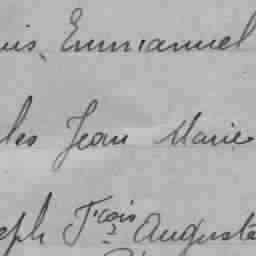 uis, Emmanuel
les Jean Marie
eph Fçois Auguste